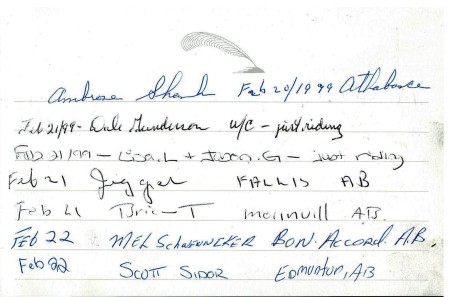 Ambrose Shank Feb 20/1999 Athabasca
Feb 21/99 - Dale Gunderson W/C - just riding
Feb 21/99 - Lisa.L + Jason.G - just riding
Feb 21 Jigger FALLIS AB
Feb 21 Brie-T morinvill AB.
FEB 22 MEL SCHOENNECKER BON. ACCORD. A.B.
Feb 22 SCOTT SIDOR EDMONTON, AB